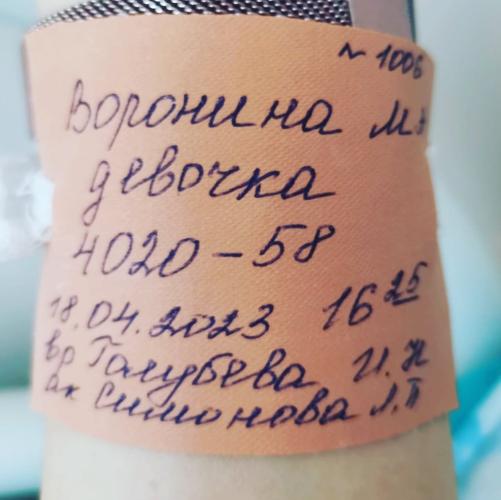 № 1006
Воронина М.
девочка
4020-58
18.04.2023 16 25
вр Голубева И.Н
ак Симонова Л.П